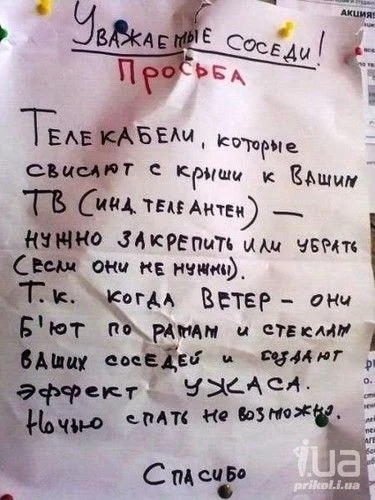 Уважаемые соседи!
Просьба
Телекабели, которые
свисают с крыши к Вашим
ТВ (инд. телеантен) —
нужно закрепить или убрать
(если они не нужны).
Т.к. когда ВЕТЕР – они
б'ют по рамам и стеклам
ваших соседей и создают
эффект УЖАСА.
Ночью спать не возможно.
Спасибо
АКЦИЯ
i.ua
prikol.i.ua